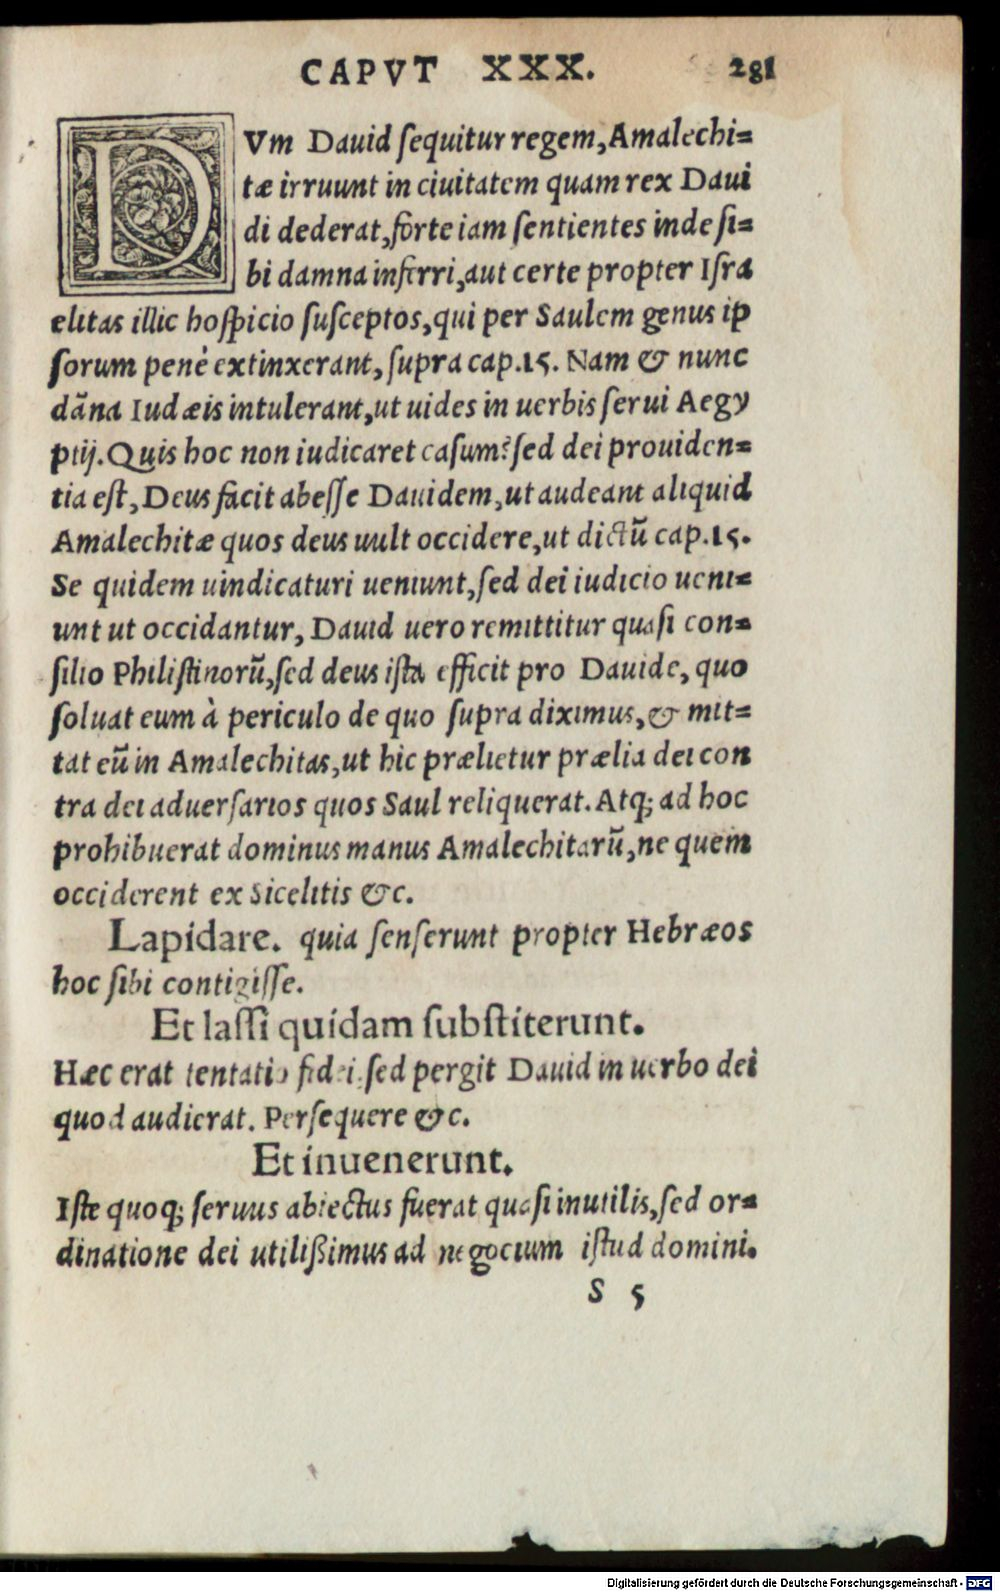 CAPVT XXX. 281
DVm Dauid ſequitur regem, Amalechi=
tæ irruunt in ciuitatem quam rex Daui
di dederat, forte iam ſentientes inde ſi=
bi damna inferri, aut certe propter Iſra
elitas illic hoſpicio ſuſceptos, qui per Saulem genus ip
ſorum penè extinxerant, ſupra cap.15. Nam & nunc
dãna Iudæis intulerant, ut uides in uerbis ſerui Aegy
ptij. Quis hoc non iudicaret caſum? ſed dei prouiden=
tia eſt, Deus facit abeſſe Dauidem, ut audeant aliquid
Amalechitæ quos deus uult occidere, ut dictũ cap.15.
Se quidem uindicaturi ueniunt, ſed dei iudicio ueni=
unt ut occidantur, Dauid uero remittitur quaſi con=
ſilio Philiſtinorũ, ſed deus iſta efficit pro Dauide, quo
ſoluat eum à periculo de quo ſupra diximus, & mit=
tat eũ in Amalechitas, ut hic prælietur prælia dei con
tra dei aduerſarios quos Saul reliquerat. Atq; ad hoc
prohibuerat dominus manus Amalechitarũ, ne quem
occiderent ex Sicelitis &c.
Lapidare. quia ſenſerunt propter Hebræos
hoc ſibi contigiſſe.
Et laſſi quidam ſubſtiterunt.
Hæc erat tentatio fidei, ſed pergit Dauid in uerbo dei
quod audierat. Perſequere &c.
Et inuenerunt.
Iſte quoq; ſeruus abiectus fuerat quaſi inutilis, ſed or=
dinatione dei utilißimus ad negocium iſtud domini.
S 5
Digitalisierung gefördert durch die Deutsche Forschungsgemeinschaft - DFG